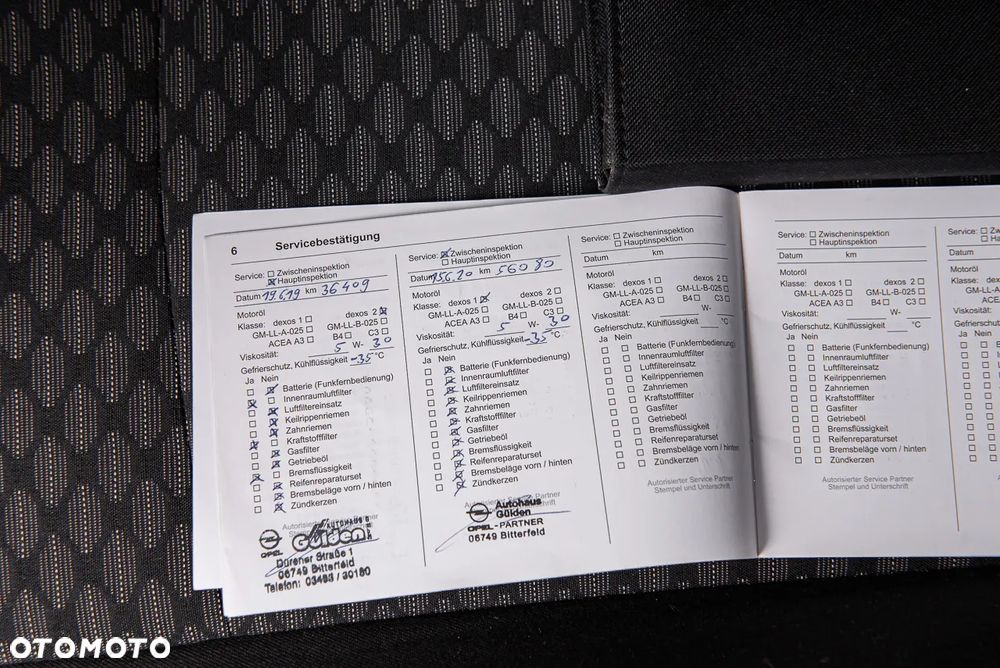 6 Servicebestätigung
Service: ☐ Zwischeninspektion
☒ Hauptinspektion
Datum 19.6.19 km 36409
Motoröl
Klasse: dexos 1 ☐ dexos 2 ☒
GM-LL-A-025 ☐ GM-LL-B-025 ☐
ACEA A3 ☐ B4 ☐ C3 ☐
Viskosität: 5 W- 30
Gefrierschutz, Kühlflüssigkeit -35 °C
Ja Nein
Batterie (Funkfernbedienung)
Innenraumluftfilter
Luftfiltereinsatz
Keilrippenriemen
Zahnriemen
Kraftstofffilter
Gasfilter
Getriebeöl
Bremsflüssigkeit
Reifenreparaturset
Bremsbeläge vorn / hinten
Zündkerzen
Autorisierter
OPEL
AUTOHAUS
Gülden
Dürener Straße 1
06749 Bitterfeld
Telefon: 03493 / 30180
Service: ☒ Zwischeninspektion
☐ Hauptinspektion
Datum 15.6.20 km 56080
Motoröl
Klasse: dexos 1 ☒ dexos 2 ☐
GM-LL-A-025 ☐ GM-LL-B-025 ☐
ACEA A3 ☐ B4 ☐ C3 ☐
Viskosität: 5 W- 30
Gefrierschutz, Kühlflüssigkeit -35 °C
Ja Nein
Batterie (Funkfernbedienung)
Innenraumluftfilter
Luftfiltereinsatz
Keilrippenriemen
Zahnriemen
Kraftstofffilter
Gasfilter
Getriebeöl
Bremsflüssigkeit
Reifenreparaturset
Bremsbeläge vorn / hinten
Zündkerzen
Autorisierter Service Partner
Autohaus
Gülden
OPEL-PARTNER
06749 Bitterfeld
Service: ☐ Zwischeninspektion
☐ Hauptinspektion
Datum km
Motoröl
Klasse: dexos 1 ☐ dexos 2 ☐
GM-LL-A-025 ☐ GM-LL-B-025 ☐
ACEA A3 ☐ B4 ☐ C3 ☐
Viskosität: W-
Gefrierschutz, Kühlflüssigkeit °C
Ja Nein
Batterie (Funkfernbedienung)
Innenraumluftfilter
Luftfiltereinsatz
Keilrippenriemen
Zahnriemen
Kraftstofffilter
Gasfilter
Getriebeöl
Bremsflüssigkeit
Reifenreparaturset
Bremsbeläge vorn / hinten
Zündkerzen
Autorisierter Service Partner
Stempel und Unterschrift
Service: ☐ Zwischeninspektion
☐ Hauptinspektion
Datum km
Motoröl
Klasse: dexos 1 ☐ dexos 2 ☐
GM-LL-A-025 ☐ GM-LL-B-025 ☐
ACEA A3 ☐ B4 ☐ C3 ☐
Viskosität: W-
Gefrierschutz, Kühlflüssigkeit °C
Ja Nein
Batterie (Funkfernbedienung)
Innenraumluftfilter
Luftfiltereinsatz
Keilrippenriemen
Zahnriemen
Kraftstofffilter
Gasfilter
Getriebeöl
Bremsflüssigkeit
Reifenreparaturset
Bremsbeläge vorn / hinten
Zündkerzen
Autorisierter Service Partner
Stempel und Unterschrift
Service:
Datum
Motoröl
Klasse:
GM-LL
Viskosität:
Gefrierschutz
Ja Nein
OTOMOTO